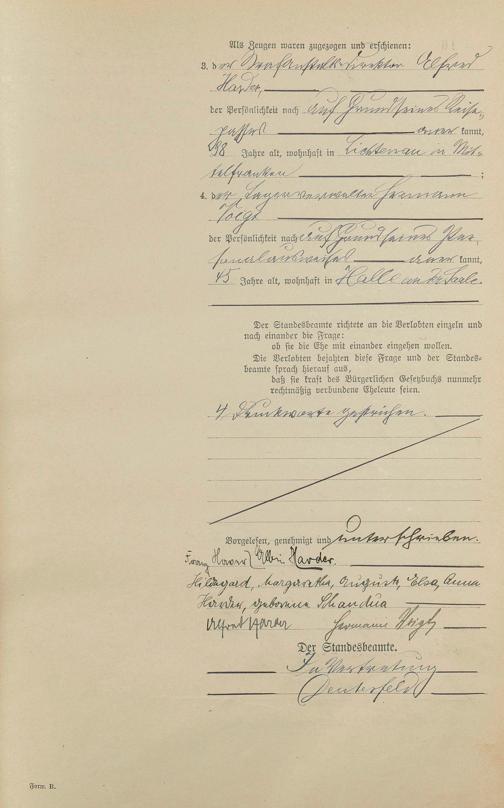 Als Zeugen waren zugezogen und erschienen:
3. der Strafanstaltsdirektor Alfred
Harder,
der Persönlichkeit nach auf Grund seines Reise-
passes anerkannt,
48 Jahre alt, wohnhaft in Lichtenau in Mit-
telfranken;
4. der Lagerverwalter Hermann
Voigt
der Persönlichkeit nach auf Grund seines Per-
sonalausweises anerkannt,
45 Jahre alt, wohnhaft in Halle an der Saale.
Der Standesbeamte richtete an die Verlobten einzeln und
nach einander die Frage:
ob sie die Ehe mit einander eingehen wollen.
Die Verlobten bejahten diese Frage und der Standes-
beamte sprach hierauf aus,
daß sie kraft des Bürgerlichen Gesetzbuchs nunmehr
rechtmäßig verbundene Eheleute seien.
4 Druckworte gestrichen.
Vorgelesen, genehmigt und unterschrieben.
Franz Harder.
Hildegard, Margarethe, Auguste, Elsa, Anna
Harder, geborene Schandua
Alfred Harder Hermann Voigt
Der Standesbeamte.
In Vertretung
Form. B.